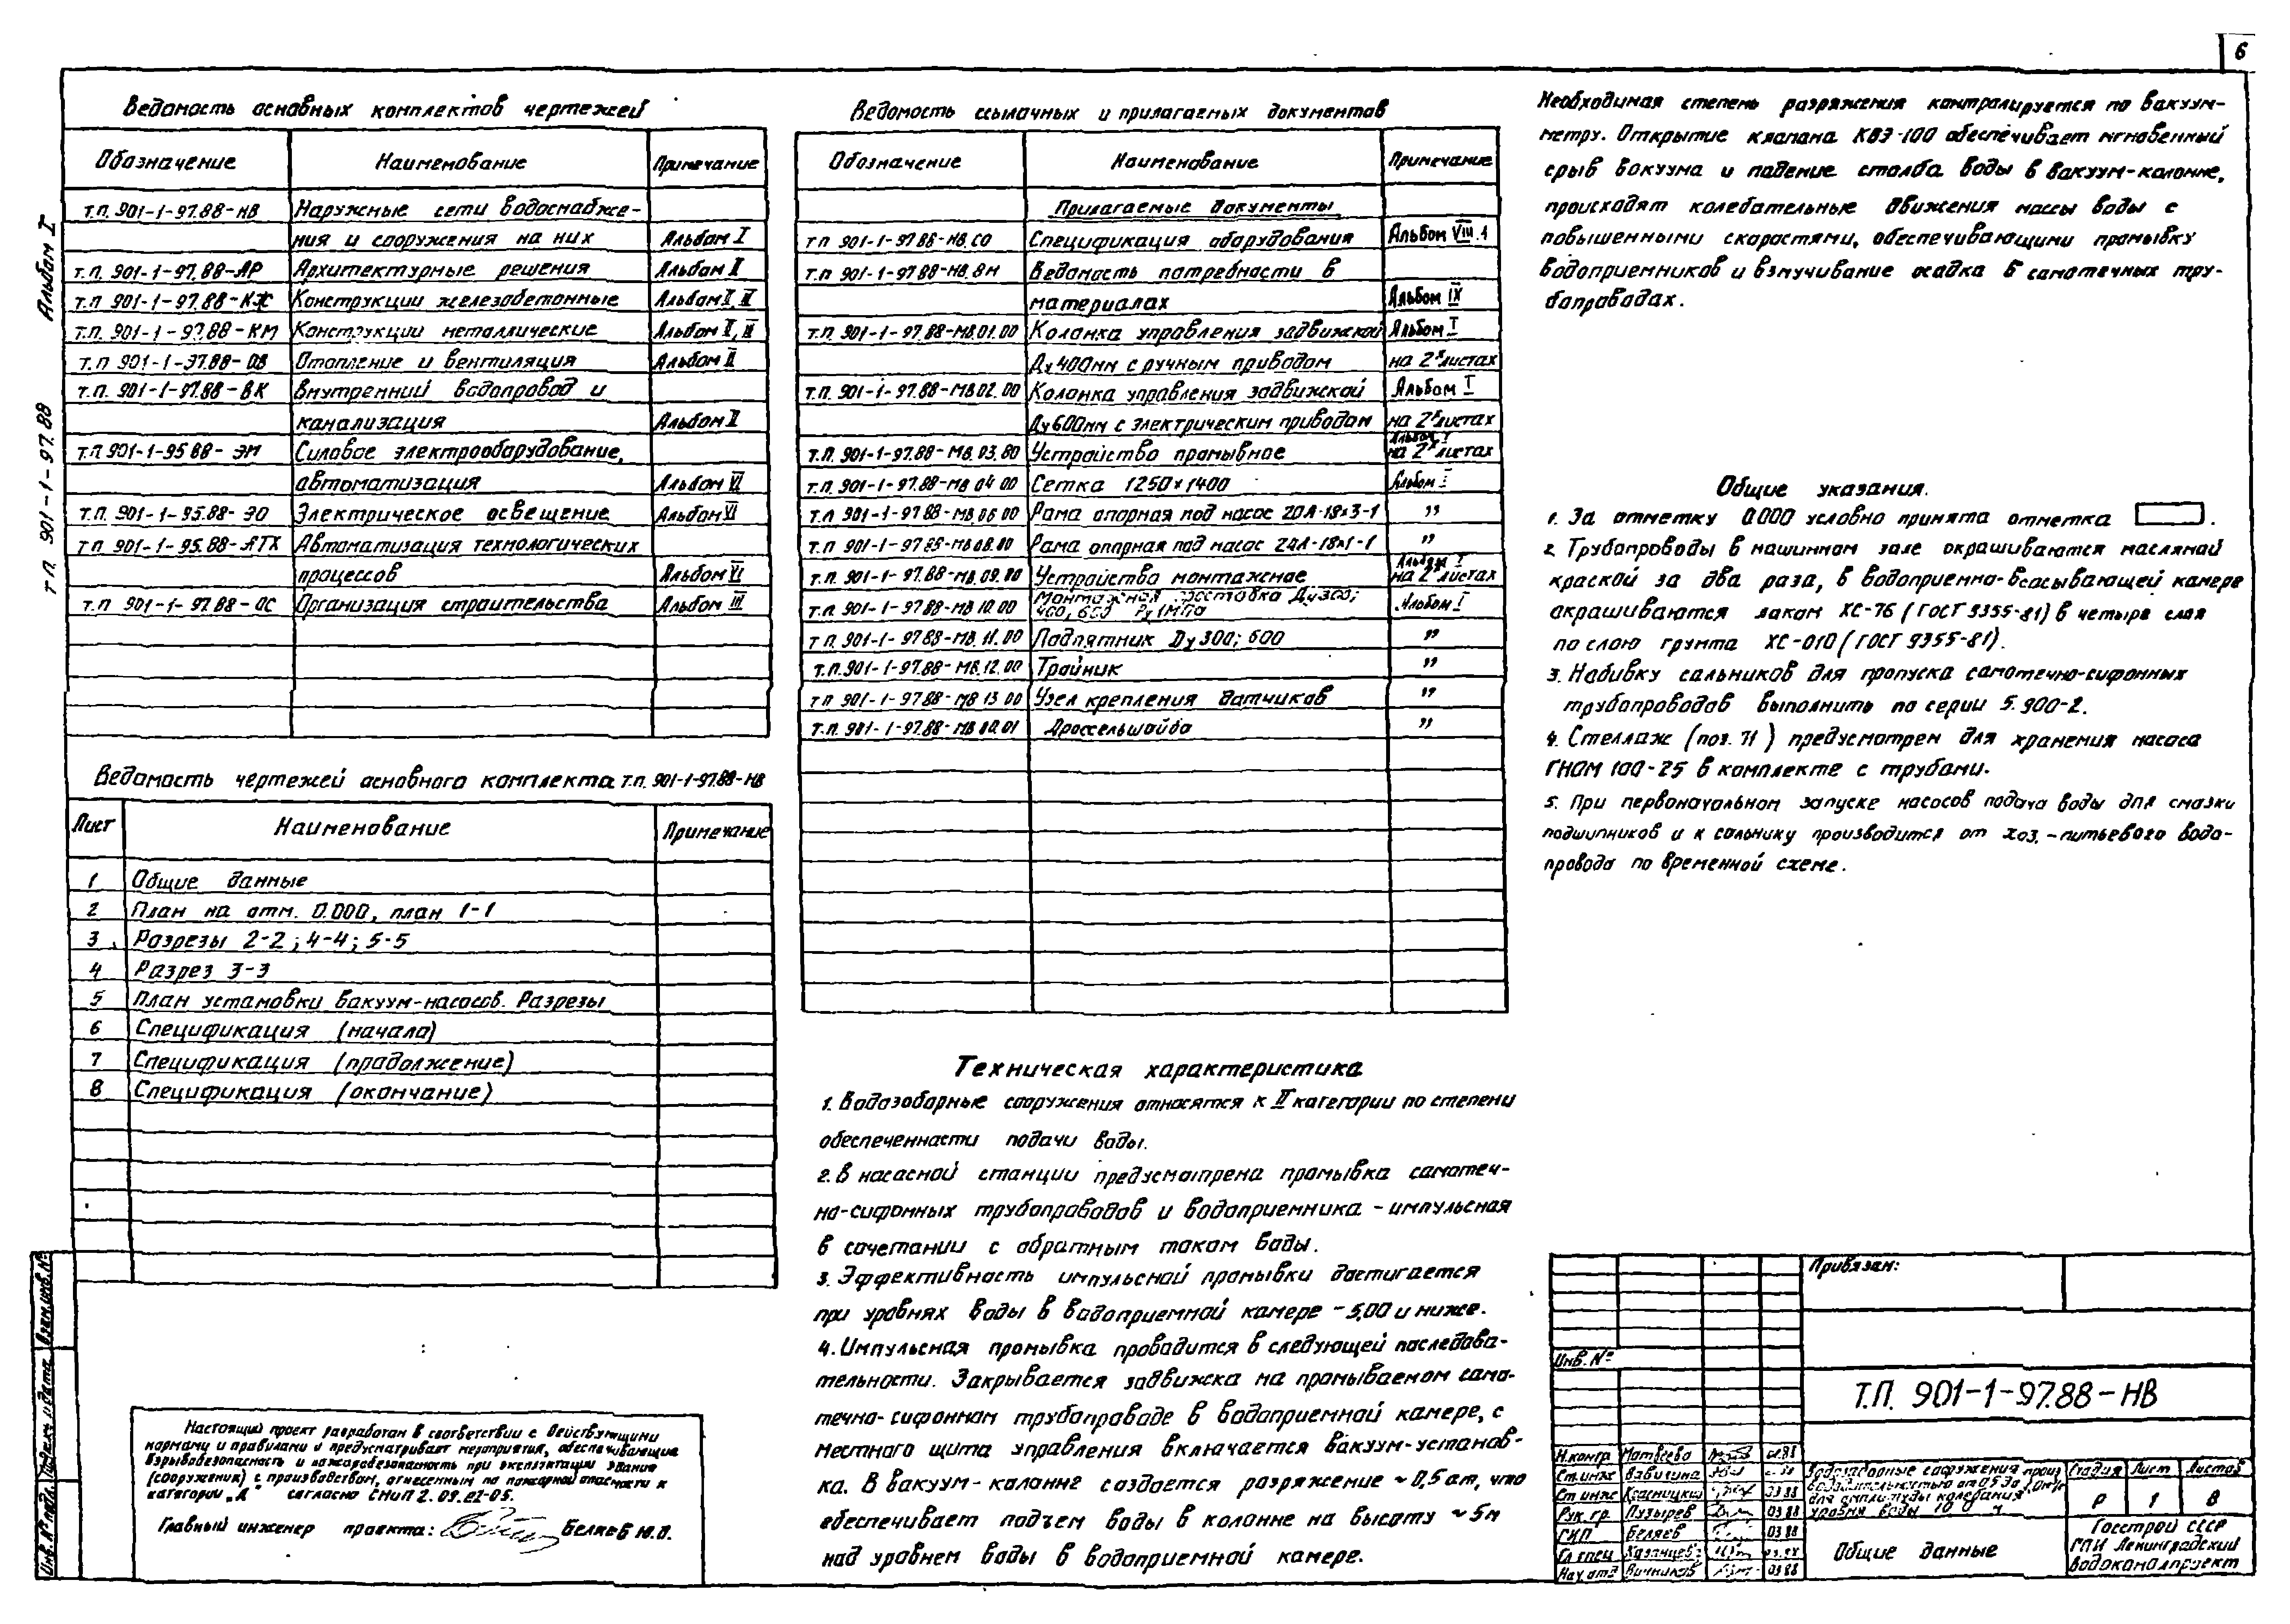 6
Альбом I
т.п. 901-1-97.88
Ведомость основных комплектов чертежей
Обозначение Наименование Примечание
т.п. 901-1-97.88-НВ Наружные сети водоснабже-
ния и сооружения на них Альбом I
т.п. 901-1-97.88-АР Архитектурные решения Альбом II
т.п. 901-1-97.88-КЖ Конструкции железобетонные Альбом
т.п. 901-1-97.88-КМ Конструкции металлические Альбом
т.п 901-1-97.88-ОВ Отопление и вентиляция Альбом II
т.п. 901-1-97.88-ВК Внутренний водопровод и
канализация Альбом II
т.п 901-1-95 88- ЭМ Силовое электрооборудование,
автоматизация Альбом VI
т.п. 901-1-95.88- ЭО Электрическое освещение Альбом VI
т п 901-1-95.88-АТХ Автоматизация технологических
процессов Альбом VI
т.п 901-1-97.88-ОС Организация строительства Альбом III
Ведомость чертежей основного комплекта т.п. 901-1-97.88-НВ
Лист Наименование Примечание
1 Общие данные
2 План на отм. 0.000, план 1-1
3 Разрезы 2-2; 4-4; 5-5
4 Разрез 3-3
5 План установки вакуум-насосов. Разрезы
6 Спецификация (начало)
7 Спецификация (продолжение)
8 Спецификация (окончание)
Настоящий проект разработан в соответствии с действующими
нормами и правилами и предусматривает мероприятия, обеспечивающие
взрывобезопасность и пожаробезопасность при эксплуатации здания
(сооружения) с производством, отнесенным по пожарной опасности к
категории „Д" согласно СНиП 2.09.02-85.
Главный инженер проекта: Беляев Ю.А.
Ведомость ссылочных и прилагаемых документов
Обозначение Наименование Примечание
Прилагаемые документы
т п 901-1-97.88-НВ.СО Спецификация оборудования Альбом VIII.1
т п 901-1-97.88-НВ.ВМ Ведомость потребности в
материалах Альбом IX
т.п. 901-1-97.88-МВ.01.00 Колонка управления задвижкой Альбом I
Ду400мм с ручным приводом на 2х листах
т.п. 901-1-97.88-МВ.02.00 Колонка управления задвижкой Альбом I
Ду600мм с электрическим приводом на 2х листах
т.п. 901-1-97.88-МВ.03.00 Устройство промывное Альбом I на 2х листах
т.п. 901-1-97.88-МВ 04 00 Сетка 1250×1400 Альбом I
т.п 901-1-97.88-МВ.06.00 Рама опорная под насос 20А-18×3-1 "
т.п 901-1-97.88-МВ.08.00 Рама опорная под насос 24А-18×1-1 "
т.п. 901-1-97.88-МВ.09.00 Устройство монтажное Альбом I на 2х листах
т.п. 901-1-97.88-МВ 10.00 Монтажная проставка Ду300; 400, 600 Ру 1МПа Альбом I
т п. 901-1-97.88-МВ.11.00 Подпятник Ду 300; 600 "
т.п. 901-1-97.88-МВ.12.00 Тройник "
т п 901-1-97.88-МВ 13 00 Узел крепления датчиков "
т.п. 901-1-97.88-МВ.00.01 Дроссельшайба "
Техническая характеристика
1. Водозаборные сооружения относятся к II категории по степени
обеспеченности подачи воды.
2. В насосной станции предусмотрена промывка самотеч-
но-сифонных трубопроводов и водоприемника - импульсная
в сочетании с обратным током воды.
3. Эффективность импульсной промывки достигается
при уровнях воды в водоприемной камере -5,00 и ниже.
4. Импульсная промывка проводится в следующей последова-
тельности. Закрывается задвижка на промываемом само-
течно-сифонном трубопроводе в водоприемной камере, с
местного щита управления включается вакуум-установ-
ка. В вакуум-колонне создается разряжение ~0,5 ат, что
обеспечивает подъем воды в колонне на высоту ~5м
над уровнем воды в водоприемной камере.
Необходимая степень разряжения контролируется по вакуум-
метру. Открытие клапана КВЭ-100 обеспечивает мгновенный
срыв вакуума и падение столба воды в вакуум-колонне,
происходят колебательные движения массы воды с
повышенными скоростями, обеспечивающими промывку
водоприемников и взмучивание осадка в самотечных тру-
бопроводах.
Общие указания.
1. За отметку 0.000 условно принята отметка .
2. Трубопроводы в машинном зале окрашиваются масляной
краской за два раза, в водоприемно-всасывающей камере
окрашиваются лаком ХС-76 (ГОСТ 9355-81) в четыре слоя
по слою грунта ХС-010 (ГОСТ 9355-81).
3. Набивку сальников для пропуска самотечно-сифонных
трубопроводов выполнить по серии 5.900-2.
4. Стеллаж (поз. 71) предусмотрен для хранения насоса
ГНОМ 100-25 в комплекте с трубами.
5. При первоначальном запуске насосов подача воды для смазки
подшипников и к сальнику производится от хоз.-питьевого водо-
провода по временной схеме.
Привязан:
Инв. №
Т.П. 901-1-97.88-НВ
Н.контр Матвеева
Ст.инж Вавилина
Ст инж Красницкий 03 88
Рук. гр. Пузырев 03 88
ГИП Беляев 03 88
Гл спец Казанцев
Нач отд 03 88
Водозаборные сооружения произ
водительностью от 0,5 до
для амплитуды колебания
уровня воды 10 0 м
Стадия Лист Листов
Р 1 8
Общие данные
Госстрой СССР
ГПИ Ленинградский
Водоканалпроект
Взам.инв.№
Подпись и дата
Инв.№ подл.